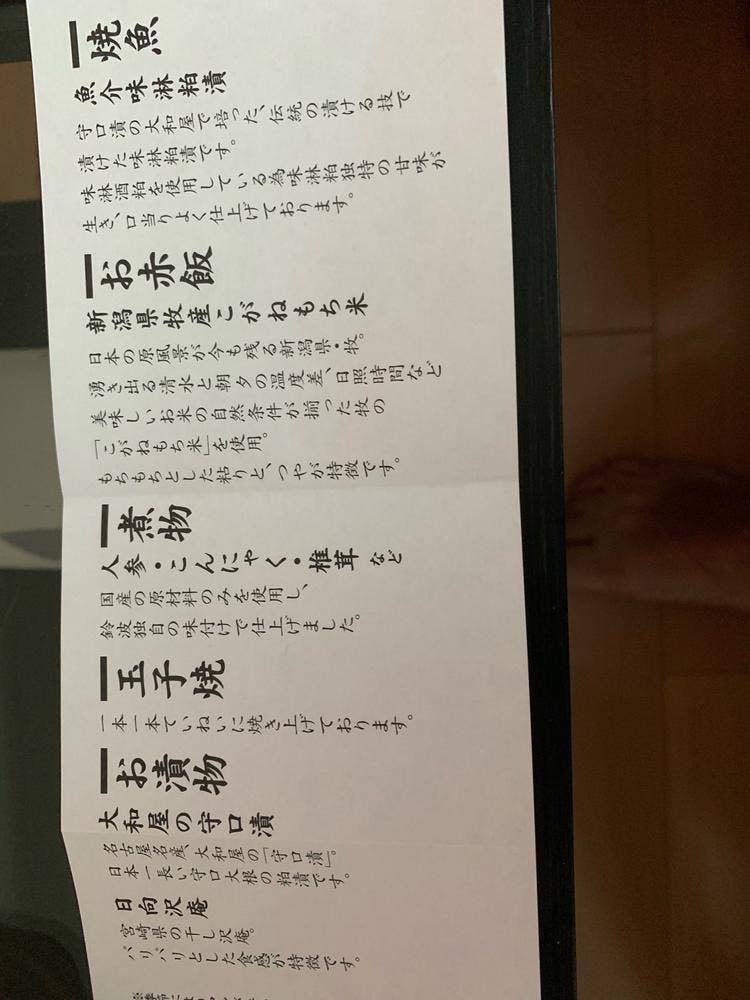 焼魚
魚介味淋粕漬
守口漬の大和屋で培った、伝統の漬ける技で
漬けた味淋粕漬です。
味淋酒粕を使用している為味淋粕独特の甘味が
生き、口当りよく仕上げております。
お赤飯
新潟県牧産こがねもち米
日本の原風景が今も残る新潟県・牧。
湧き出る清水と朝夕の温度差、日照時間など
美味しいお米の自然条件が揃った牧の
「こがねもち米」を使用。
もちもちとした粘りと、つやが特徴です。
煮物
人参・こんにゃく・椎茸 など
国産の原材料のみを使用し、
鈴波独自の味付けで仕上げました。
玉子焼
一本一本ていねいに焼き上げております。
お漬物
大和屋の守口漬
名古屋名産、大和屋の「守口漬」。
日本一長い守口大根の粕漬です。
日向沢庵
宮崎県の干し沢庵。
パリパリとした食感が特徴です。